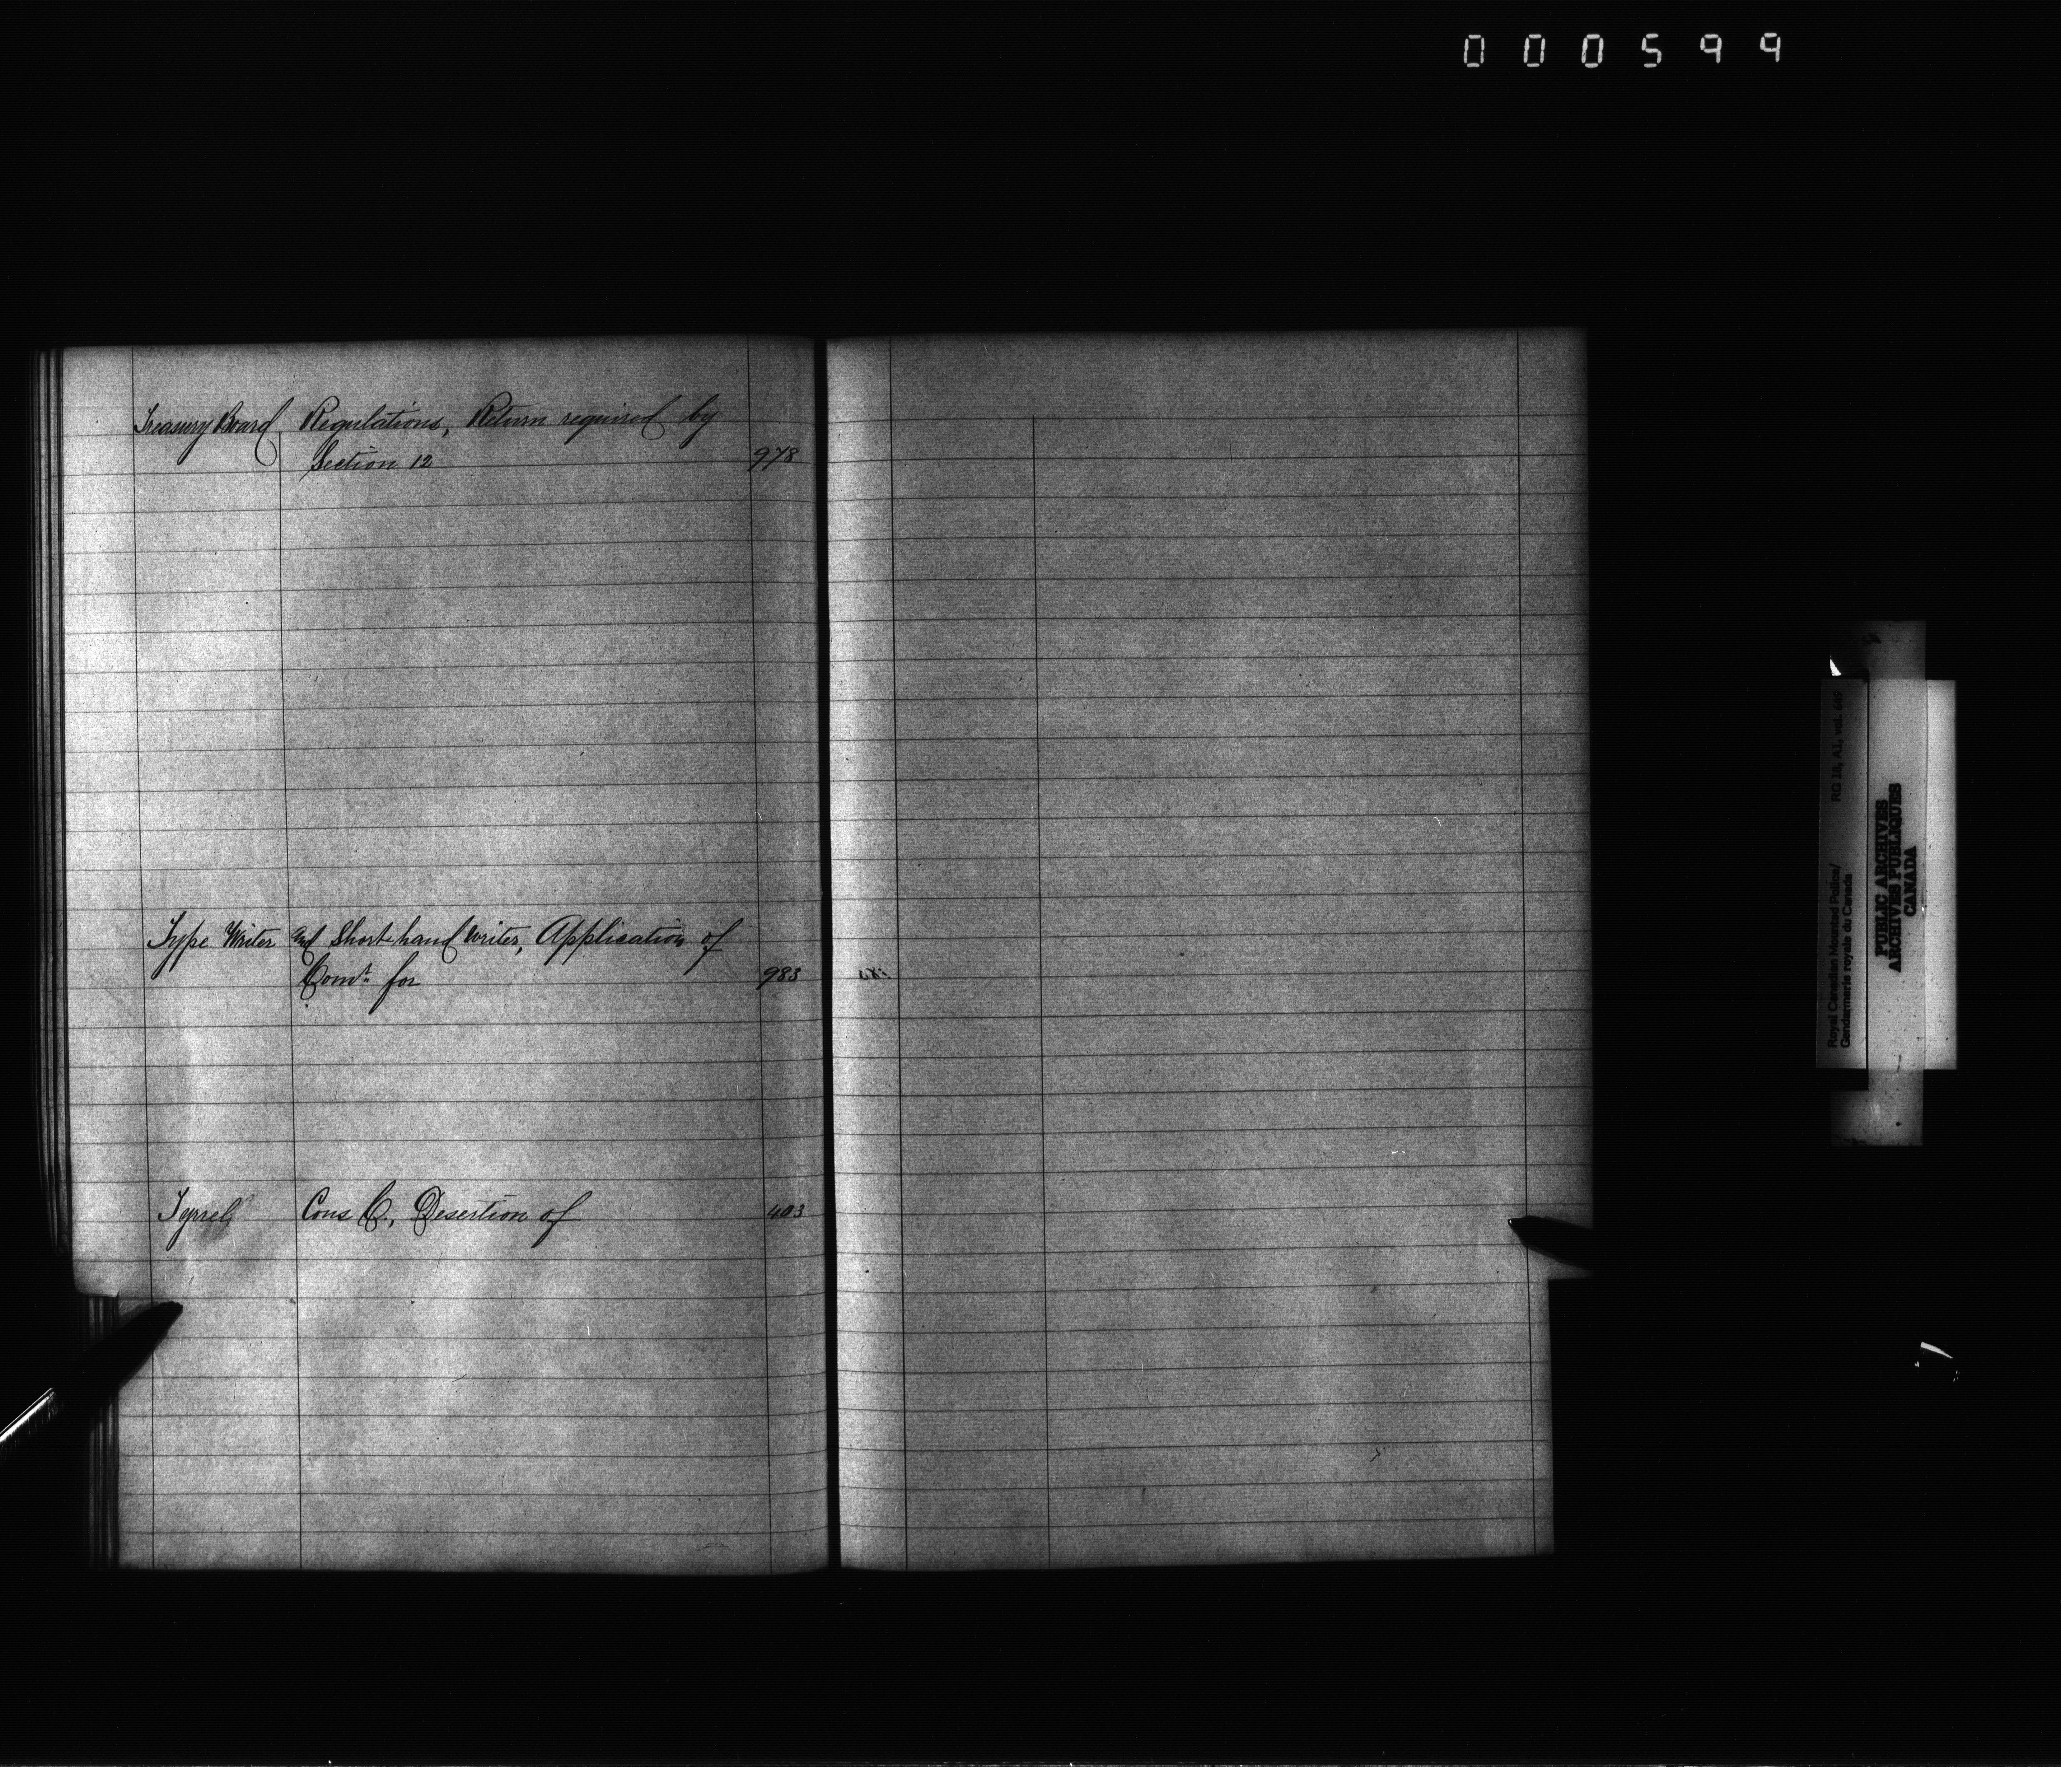 000599
Treasury Board Regulations, Return required by
Section 12 978
Type Writer and Short-hand writer, Application of
Comr for 983
Tyrrel Cons C., Desertion of 403
RG 18, A1, vol.
Royal Canadian Mounted Police/
Gendarmerie royale du Canada
PUBLIC ARCHIVES
ARCHIVES PUBLIQUES
CANADA